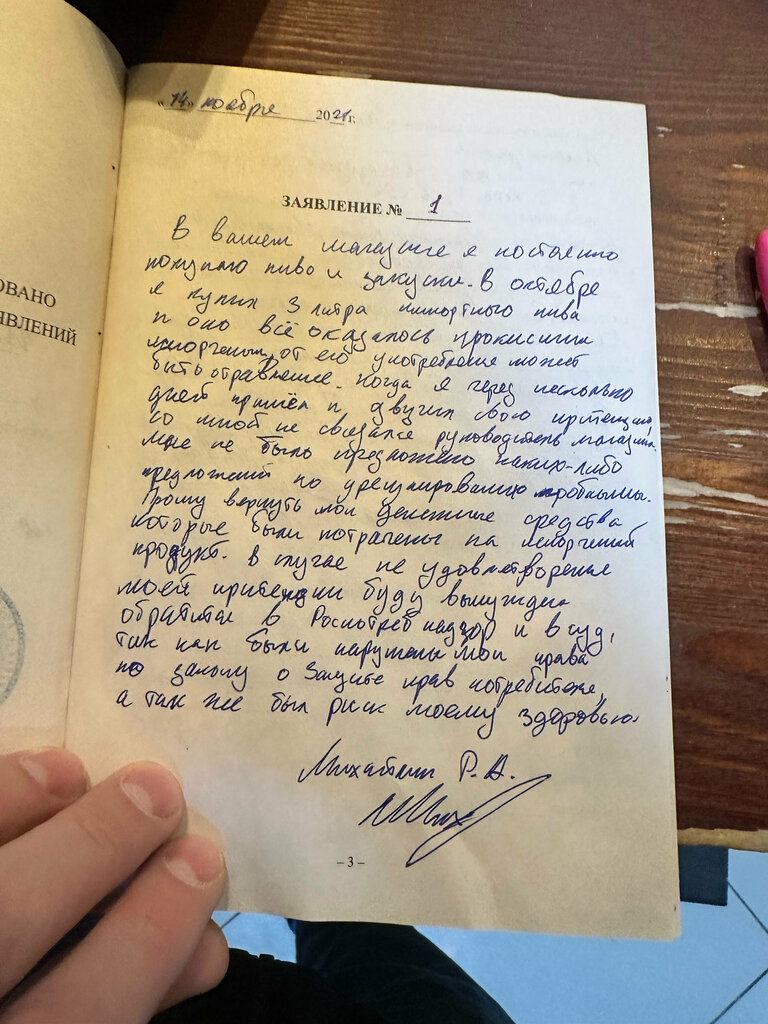 ОВАНО
ЯВЛЕНИЙ
"14" ноября 2021г.
ЗАЯВЛЕНИЕ № 1
В вашем магазине я постоянно
покупаю пиво и закуски. В октябре
я купил 3 литра импортного пива
и оно всё оказалось прокисшим
испорченым, от его употребление может
быть отравление. Когда я через несколько
дней пришёл и озвучил свою притензию,
со мной не связался руководитель магазина
мне не было предложено каких-либо
предложений по урегулированию проблемы.
Прошу вернуть мои денежные средства
которые были потрачены на испорченый
продукт. В случае не удовлетворение
моей притензии буду вынужден
обратится в Роспотребнадзор и в суд,
так как были нарушены мои права
по закону о Защите прав потребителе,
а так же был риск моему здоровью.
Михайлин Р.А.
– 3 –